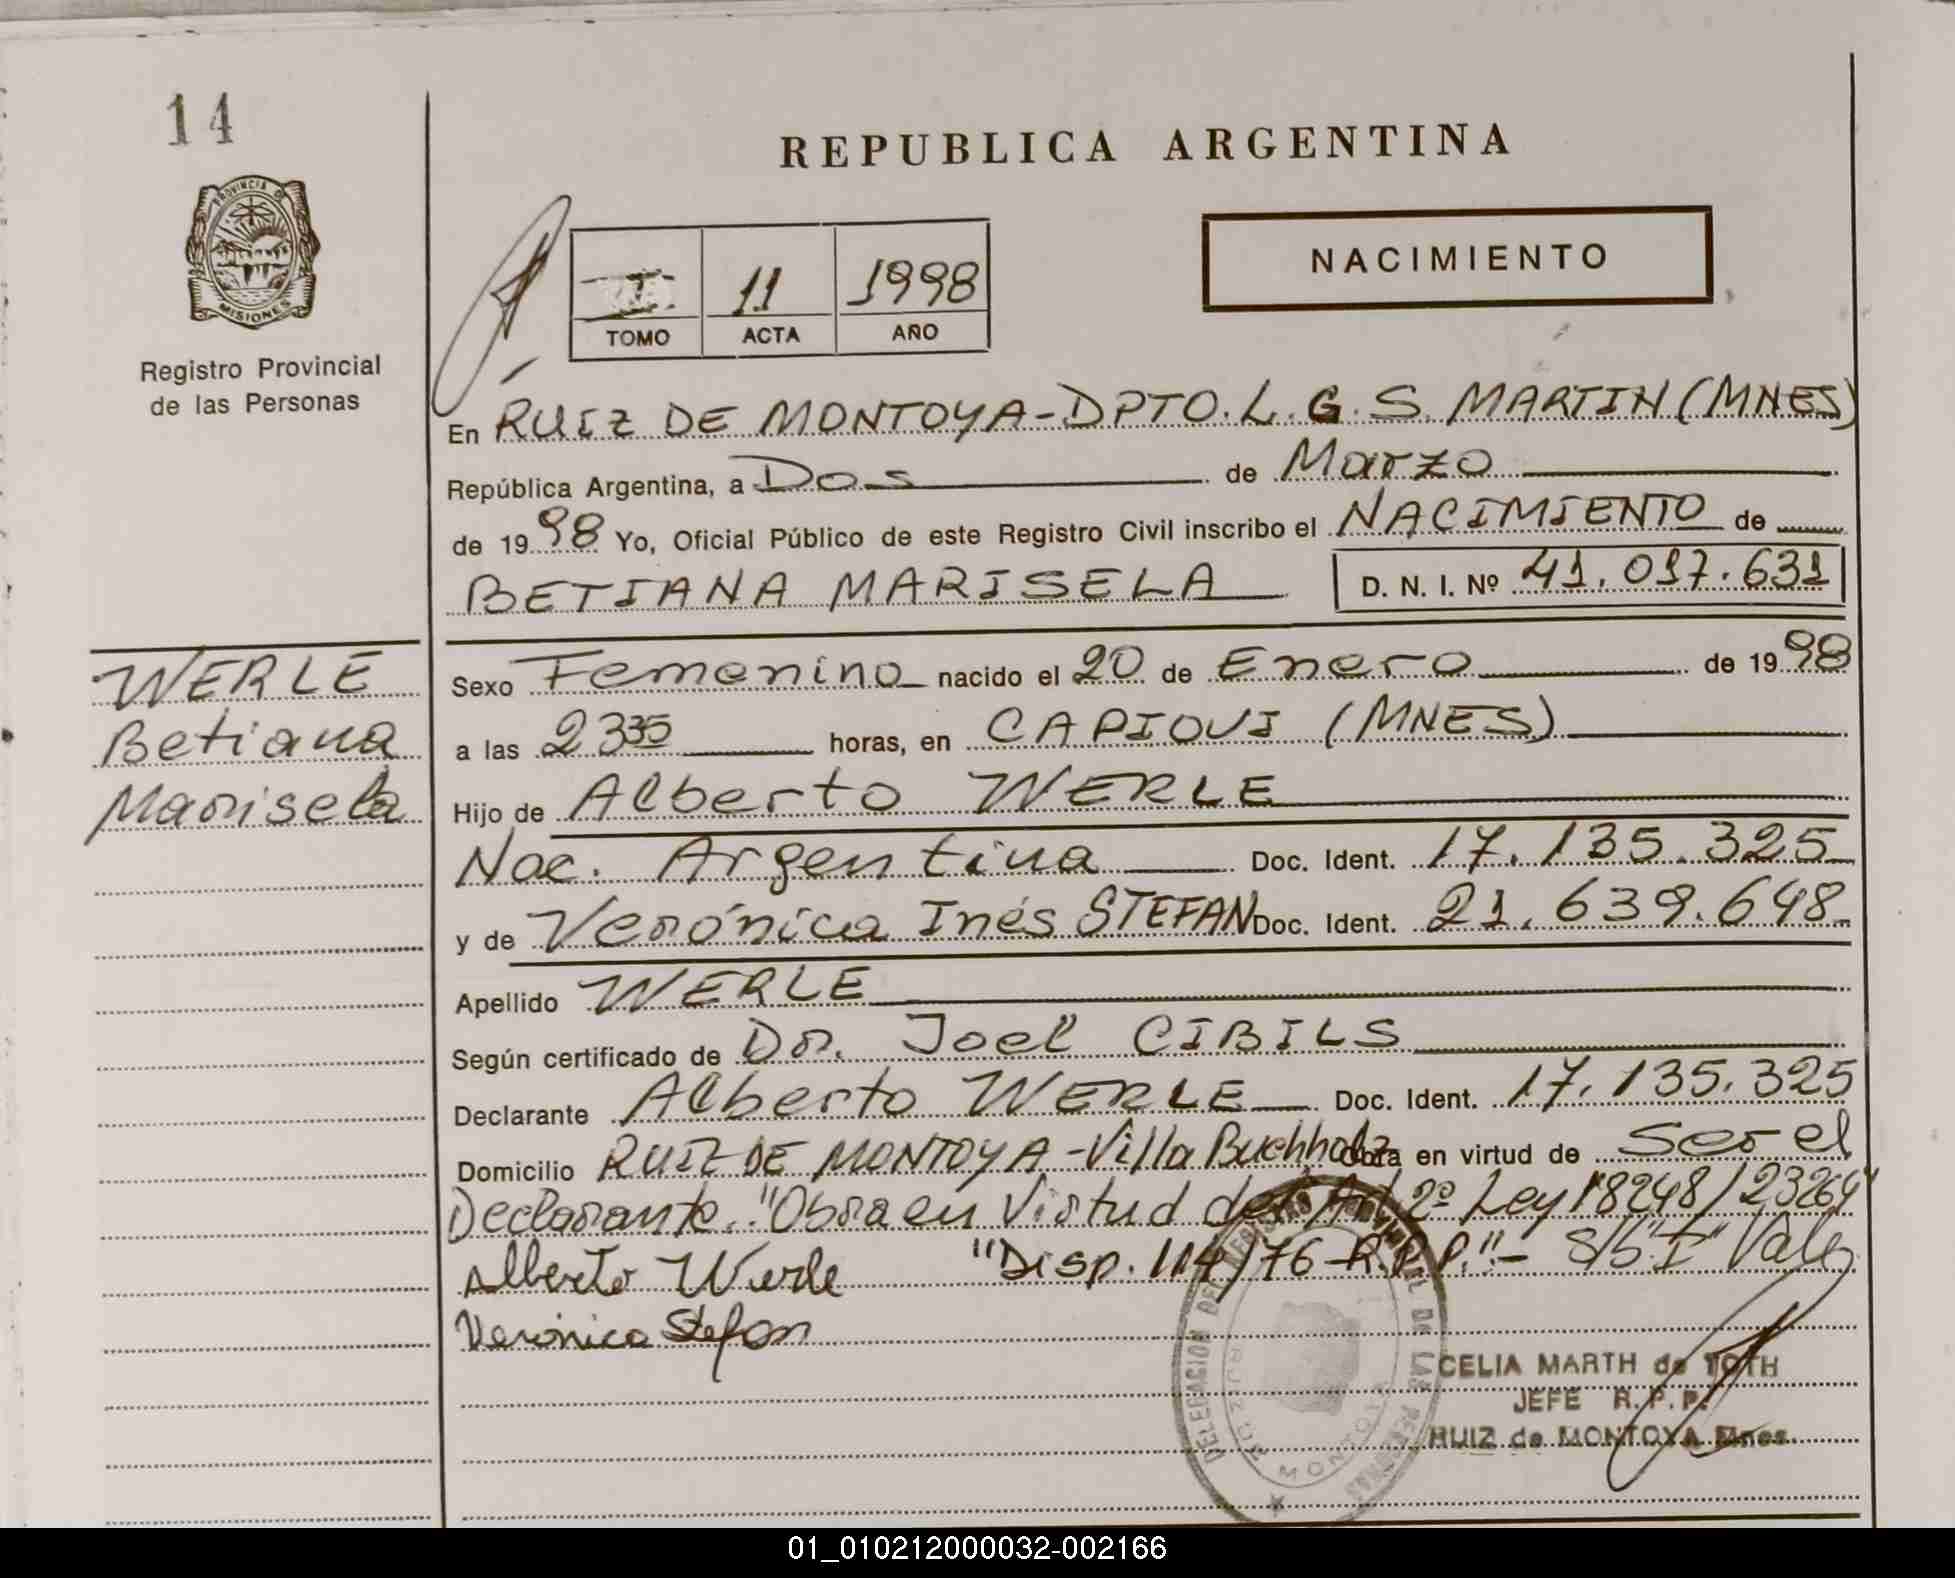 14
REPUBLICA ARGENTINA
PROVINCIA DE MISIONES
Registro Provincial
de las Personas
11 1998
TOMO ACTA AÑO
NACIMIENTO
En RUIZ DE MONTOYA-DPTO. L. G. S. MARTIN (MNES)
República Argentina, a Dos de Marzo
de 1998 Yo, Oficial Público de este Registro Civil inscribo el NACIMIENTO de
BETIANA MARISELA D. N. I. Nº 41.017.631
WERLE
Betiana
Marisela
Sexo Femenino nacido el 20 de Enero de 1998
a las 2335 horas, en CAPIOVI (MNES)
Hijo de Alberto WERLE
Nac. Argentina Doc. Ident. 17.135.325
y de Verónica Inés STEFAN Doc. Ident. 21.639.648
Apellido WERLE
Según certificado de Dr. Joel CIBILS
Declarante Alberto WERLE Doc. Ident. 17.135.325
Domicilio RUIZ DE MONTOYA-Villa Buchholz Obra en virtud de Ser el
Declarante. "Obra en Virtud del Art 2º Ley 18248/23264"
"Disp. 114/76-R.P.P."- S/b "I" Vale
Alberto Werle
Verónica Stefan
DELEGACION DEL REGISTRO PROVINCIAL DE LAS PERSONAS
RUIZ DE MONTOYA
CELIA MARTH de TOTH
JEFE R.P.P.
RUIZ de MONTOYA Mnes.
01_010212000032-002166